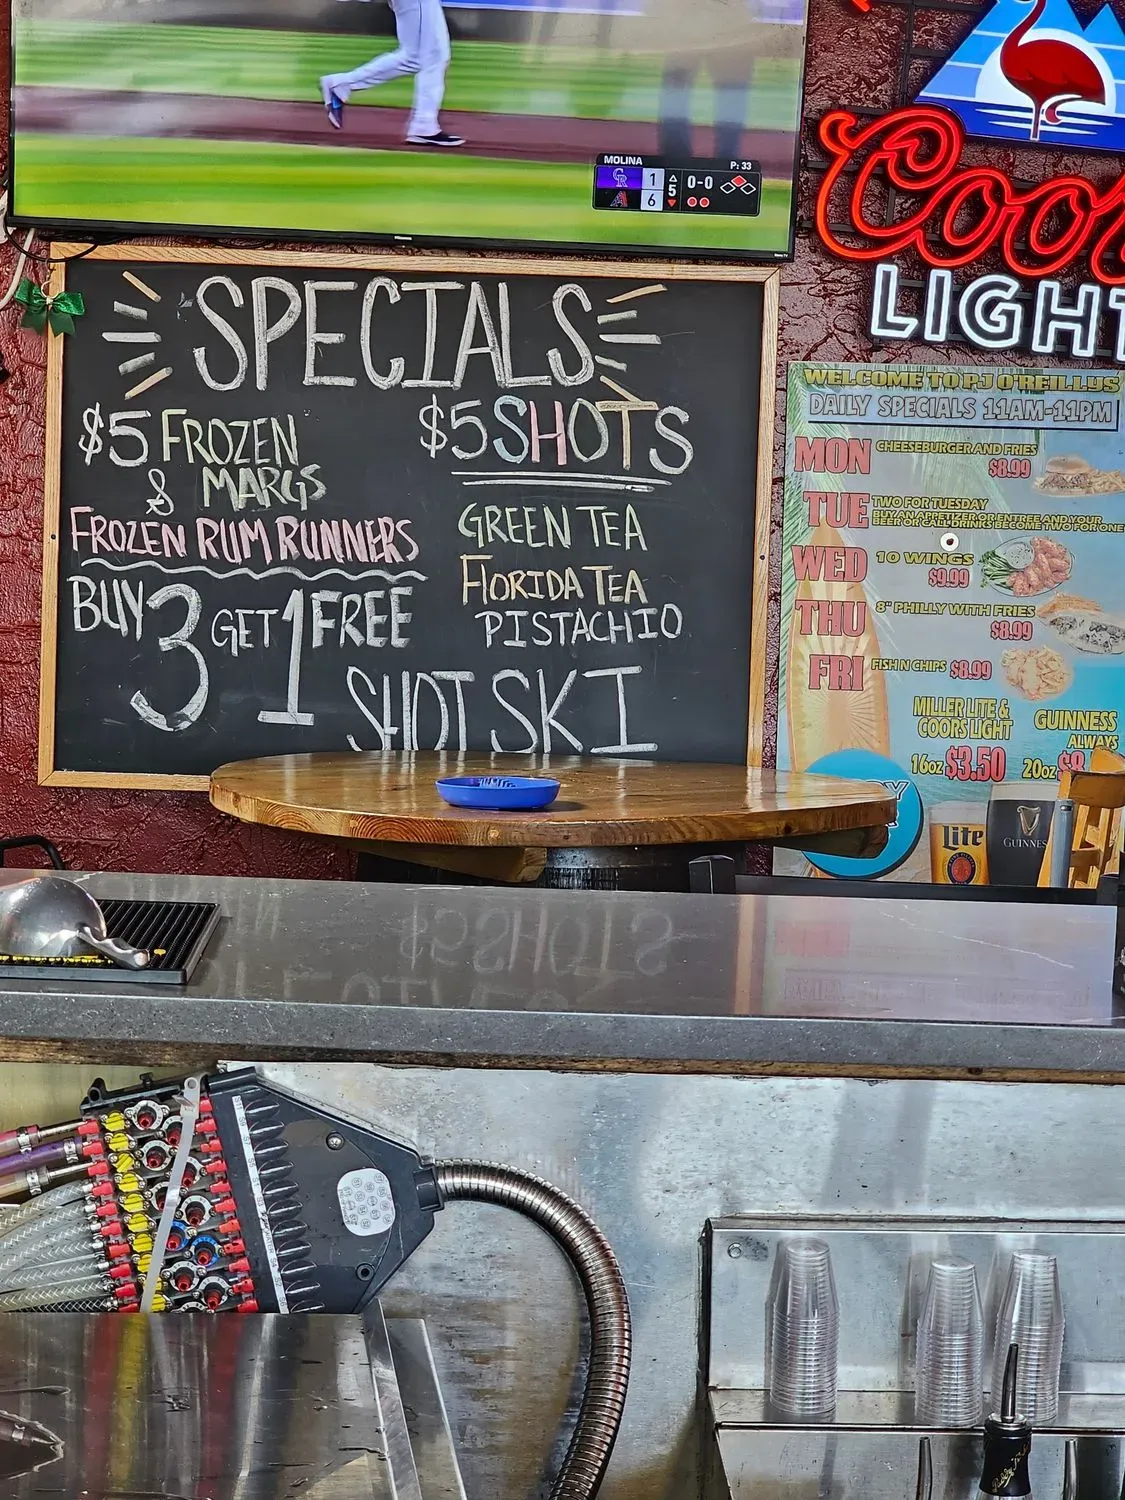 MOLINA P: 33
CR 1 5 0-0
A 6
Coo
LIGHT
SPECIALS
$5 FROZEN
& MARGS
FROZEN RUM RUNNERS
BUY 3 GET 1 FREE
$5 SHOTS
GREEN TEA
FLORIDA TEA
PISTACHIO
SHOT SKI
WELCOME TO PJ O'REILLYS
DAILY SPECIALS 11AM-11PM
MON CHEESEBURGER AND FRIES
$8.99
TUE TWO FOR TUESDAY
BUY AN APPETIZER OR ENTREE AND YOUR
BEER OR CALL DRINKS BECOME TWO FOR ONE
WED 10 WINGS
$9.99
THU 8" PHILLY WITH FRIES
$8.99
FRI FISH N CHIPS $8.99
MILLER LITE &
COORS LIGHT
16oz $3.50
GUINNESS
ALWAYS
20oz $8
Lite
GUINNESS